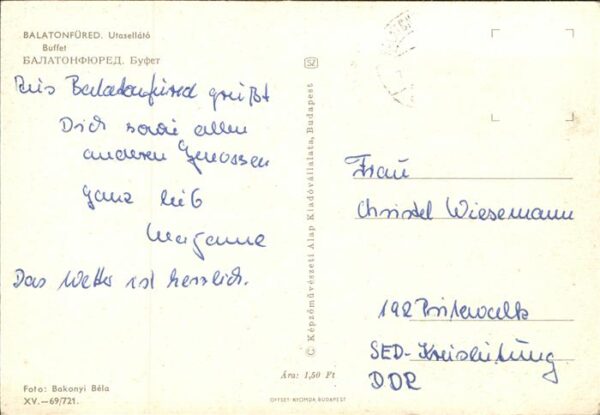 BALATONFÜRED. Utasellátó
Buffet
БАЛАТОНФЮРЕД. Буфет
Aus Balatonfüred grüßt
Dich sowie allen
anderen Genossen
ganz lieb
Das Wetter ist herrlich.
Foto: Bakonyi Béla
XV.—69/721.
SZ
© Képzőművészeti Alap Kiadóvállalata, Budapest
Ára: 1,50 Ft
OFFSET-NYOMDA, BUDAPEST
Frau
Christel Wiesemann
192 Pritzwalk
SED-Kreisleitung
DDR